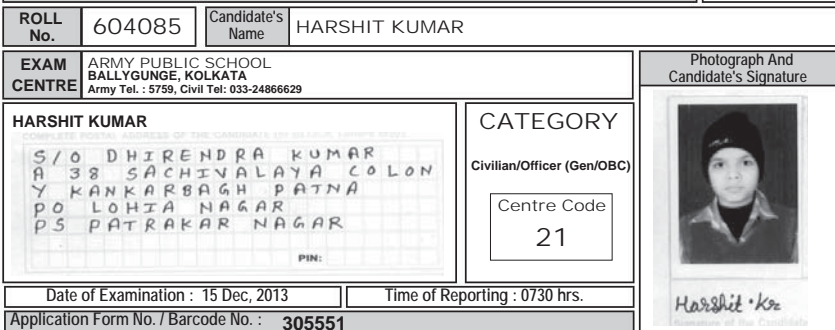 ROLL No. 604085 Candidate's Name HARSHIT KUMAR
EXAM CENTRE
ARMY PUBLIC SCHOOL
BALLYGUNGE, KOLKATA
Army Tel. : 5759, Civil Tel: 033-24866629
Photograph And
Candidate's Signature
HARSHIT KUMAR
COMPLETE POSTAL ADDRESS OF THE CANDIDATE
S/O DHIRENDRA KUMAR
A 38 SACHIVALAYA COLON
Y KANKARBAGH PATNA
PO LOHIA NAGAR
PS PATRAKAR NAGAR
PIN:
CATEGORY
Civilian/Officer (Gen/OBC)
Centre Code
21
Harshit Kr
Signature of the Candidate
Date of Examination : 15 Dec, 2013
Time of Reporting : 0730 hrs.
Application Form No. / Barcode No. : 305551